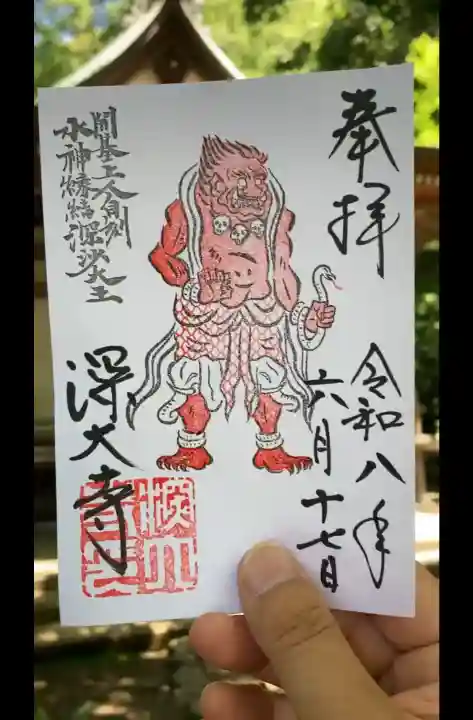 奉拝
令和八年
六月十七日
開基上人自刻
水神様縁結深沙大王
深大寺